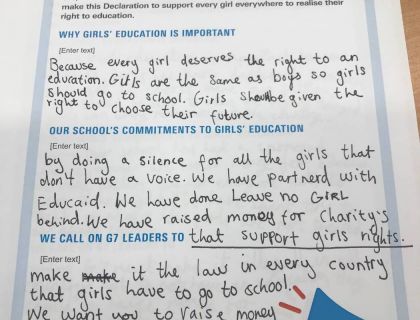 make this Declaration to support every girl everywhere to realise their
right to education.
WHY GIRLS' EDUCATION IS IMPORTANT
[Enter text]
Because every girl deserves the right to an
education. Girls are the same as boys so girls
should go to school. Girls should be given the
right to choose their future.
OUR SCHOOL'S COMMITMENTS TO GIRLS' EDUCATION
[Enter text]
by doing a silence for all the girls that
don't have a voice. We have partnerd with
Educaid. We have done Leave no GIRL
behind. We have raised money for charity's
WE CALL ON G7 LEADERS TO that support girls rights.
[Enter text]
make make it the law in every country
that girls have to go to school.
We want you to raise money